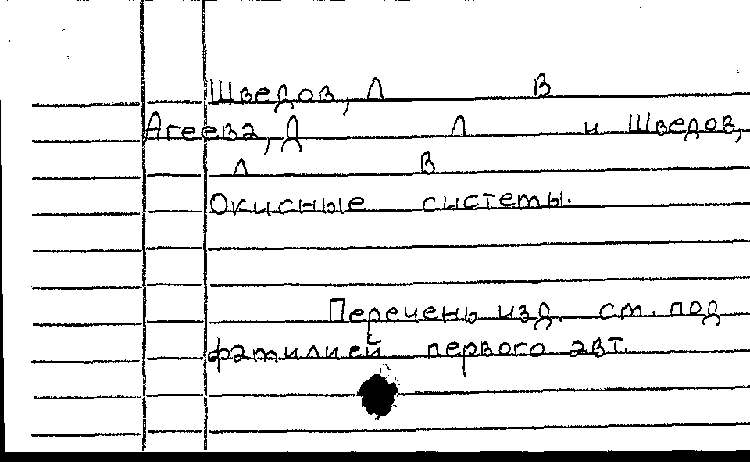 Шведов, Л В
Агеева, Д Л и Шведов,
Л В
Окисные системы.
Перечень изд. см. под
фамилией первого авт.